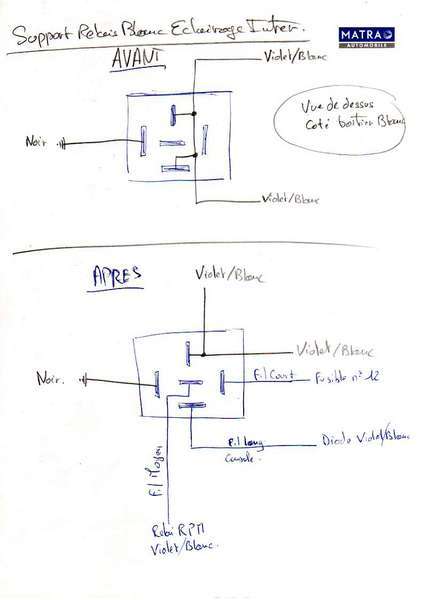 Support Relais Blanc Eclairage Inter.
MATRA
AUTOMOBILE
AVANT
Violet/Blanc
Vue de dessus
Coté boitier Blanc
Noir
Violet/Blanc
APRES
Violet/Blanc
Violet/Blanc
Noir.
Fil Court
Fusible n° 12
Fil Long
Console.
Diode Violet/Blanc
Fil Moyen
Relai RPM
Violet/Blanc.